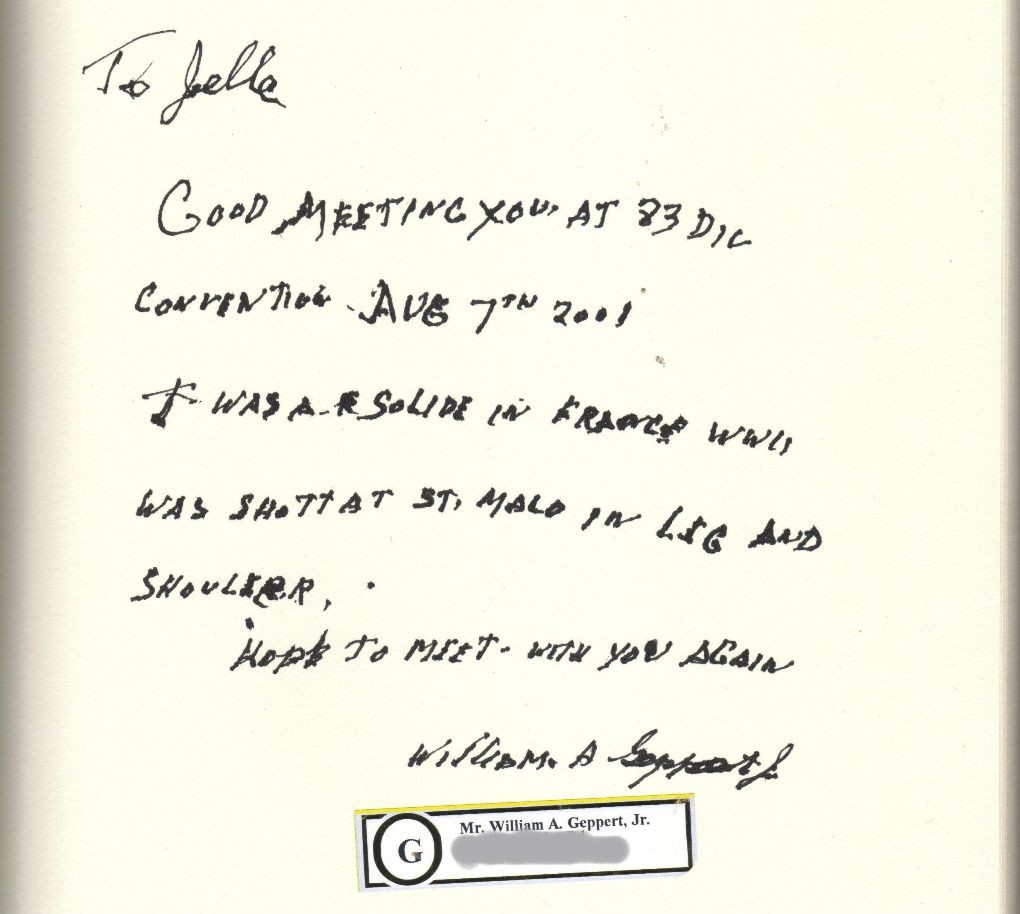 To Jelle
GOOD MEETING YOU, AT 83 DIV
CONVENTION - AUG 7TH 2001
I WAS A R SOLIDE IN FRANCE WWII
WAS SHOTT AT ST. MALO IN LEG AND
SHOULEER,
HOPE TO MEET - WITH YOU AGAIN
WILLIAM. A Geppert Jr
Mr. William A. Geppert, Jr.
G